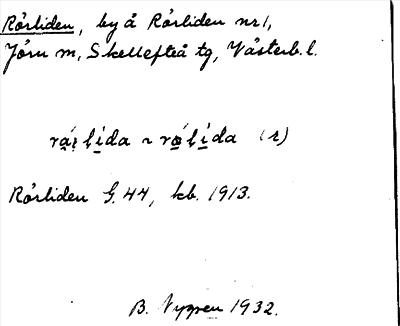 Rörliden, by å Rörliden nr 1,
Jörn m, Skellefteå tg, Västerb. l.
lida ~ lida (r)
Rörliden G. 44, kb. 1913.
B. Nygren 1932.